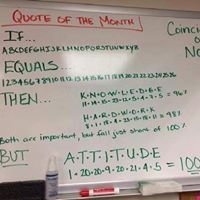 QUOTE OF THE MONTH
Coinc
No
If...
ABCDEFGHIJKLMNOPQRSTUVWXYZ
EQUALS...
1 2 3 4 5 6 7 8 9 10 11 12 13 14 15 16 17 18 19 20 21 22 23 24 25 26
THEN...
K·N·O·W·L·E·D·G·E
11·14·15·23·12·5·4·7·5 = 96%
H·A·R·D·W·O·R·K
8·1·18·4·23·15·18·11 = 98%
Both are important, but fall just short of 100%
BUT
A·T·T·I·T·U·D·E
1·20·20·9·20·21·4·5 = 100